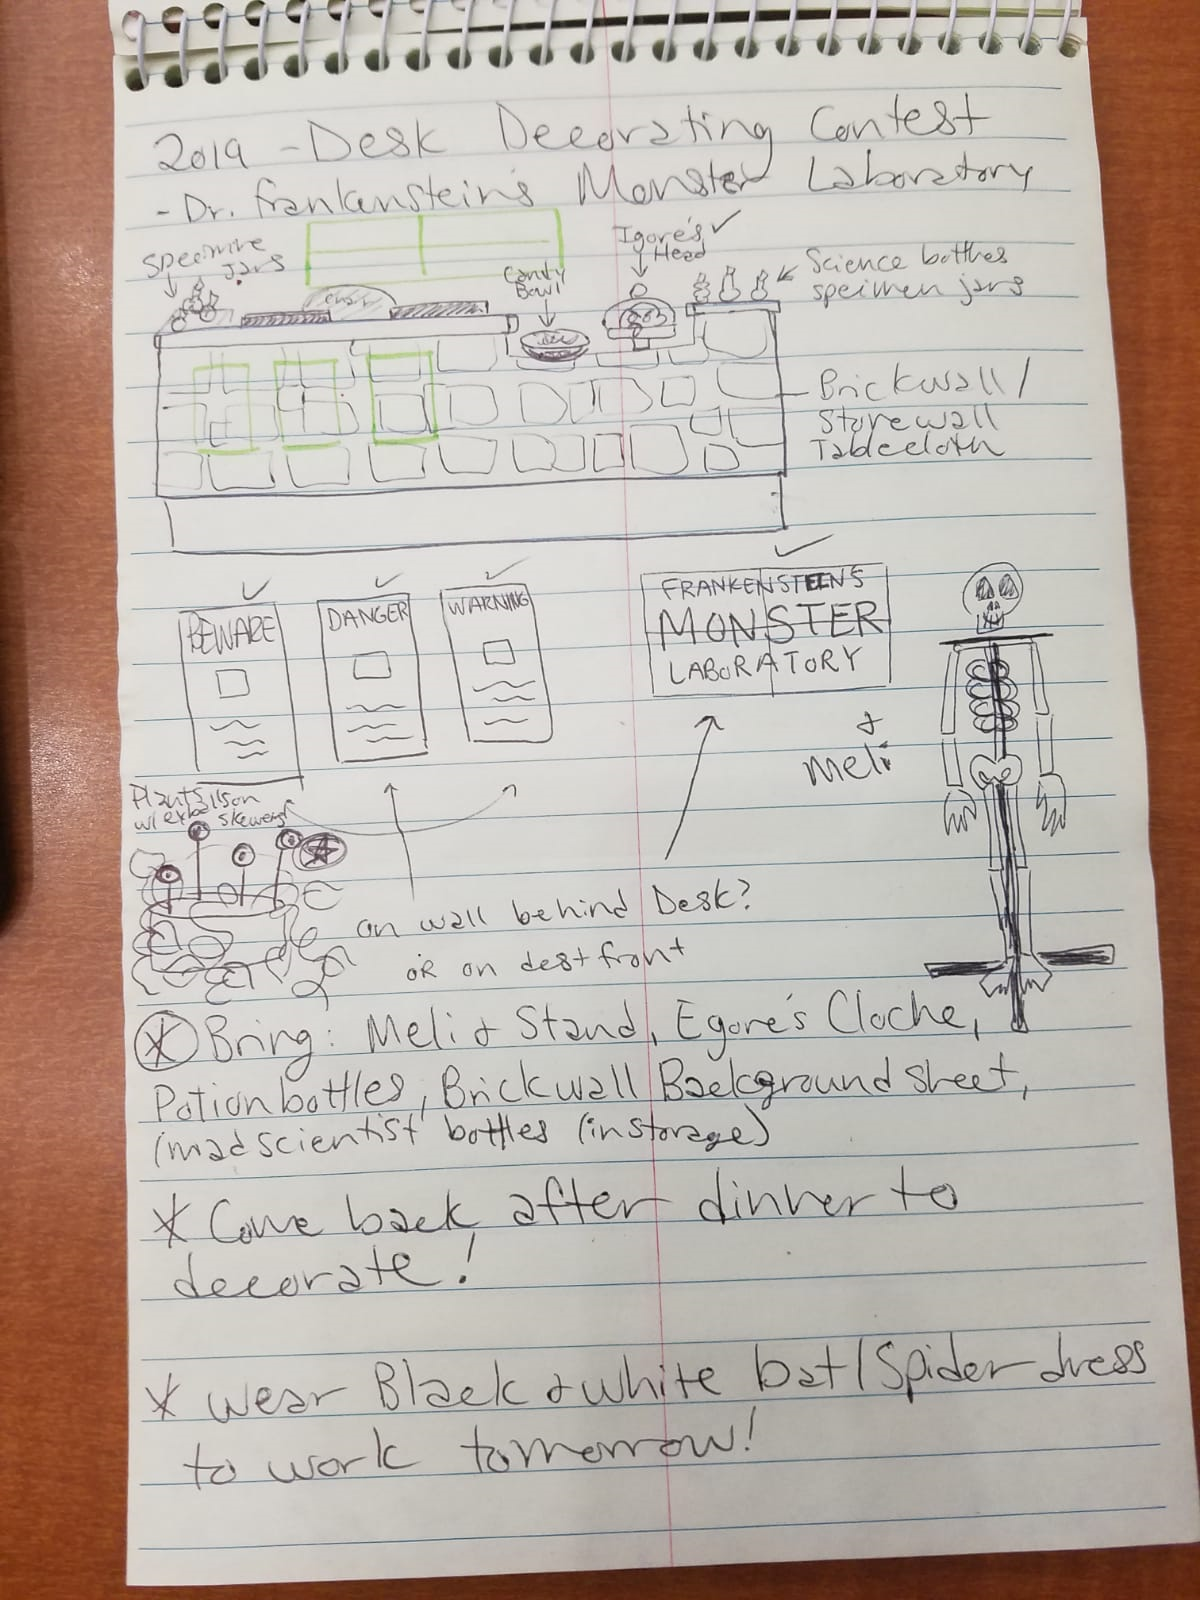 2019 - Desk Decorating Contest
- Dr. Frankenstein's Monster Laboratory
Specimine
Jars
Candy
Bowl
Igore's ✓
Head
Science bottles
specimen jars
Brickwall /
Stonewall
Tablecloth
BEWARE
DANGER
WARNING
FRANKENSTEIN'S
MONSTER
LABORATORY
&
Meli
Plants
w/
skewers
on wall behind Desk?
OR on desk front
* Bring: Meli & Stand, Egore's Cloche,
Potion bottles, Brickwall Background sheet,
(mad scientist bottles (in storage)
* Come back after dinner to
decorate!
* wear Black & white bat / Spider dress
to work tomorrow!